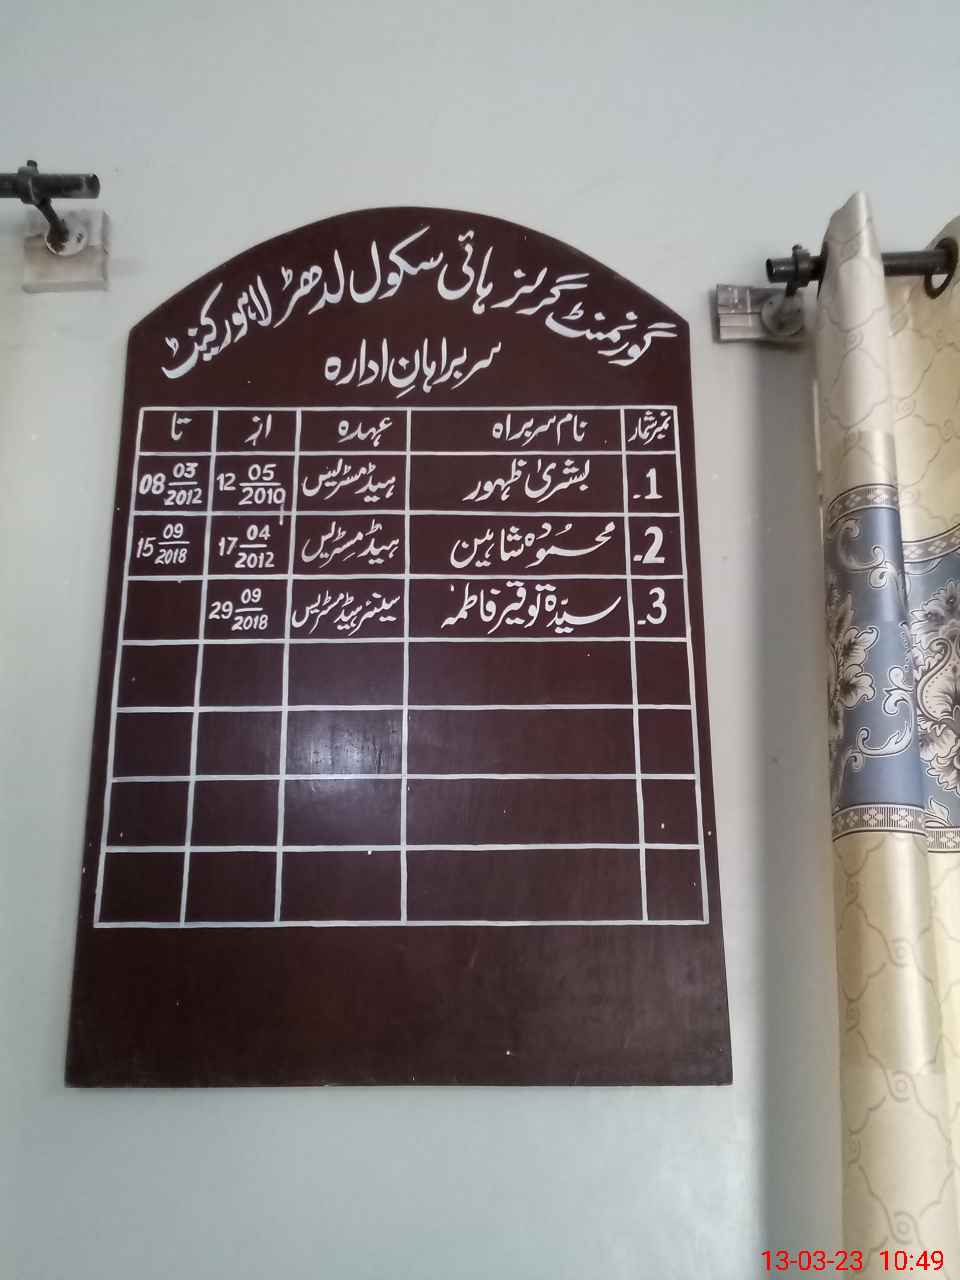 گورنمنٹ گرلز ہائی سکول لدھڑ لاہور کینٹ
سربراہانِ ادارہ
نمبر شمار نام سربراہ عہدہ از تا
1۔ بشریٰ ظہور ہیڈمسٹریس 12 05/2010 08 03/2012
2۔ محمودہ شاہین ہیڈمسٹریس 17 04/2012 15 09/2018
3۔ سیدۃ توقیر فاطمہ سینئر ہیڈمسٹریس 29 09/2018
13-03-23 10:49